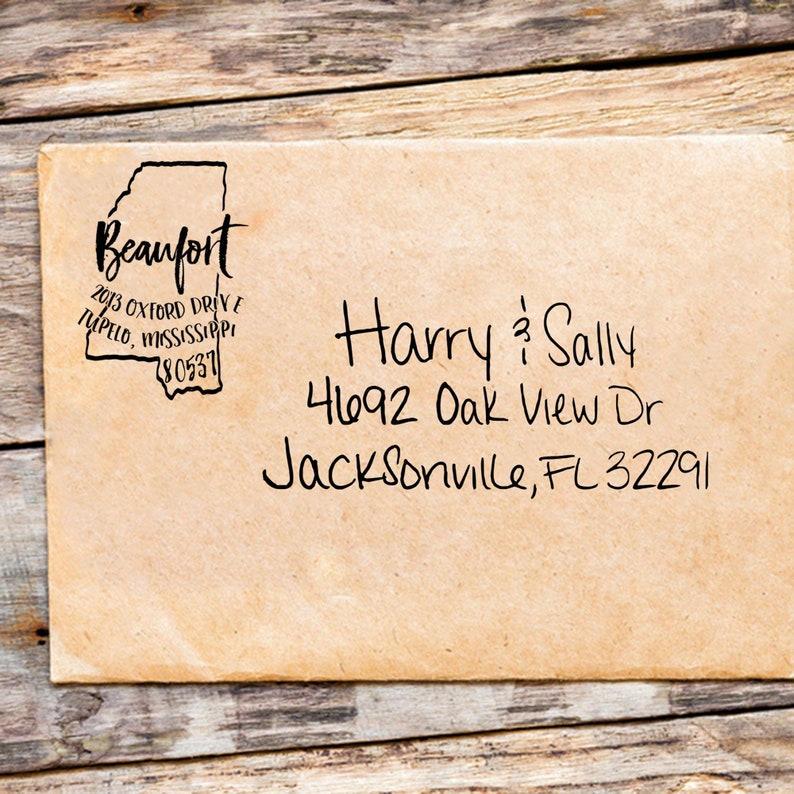 Beaufort
2013 OXFORD DRIVE
TUPELO, MISSISSIPPI
80537
Harry & Sally
4692 Oak View Dr
Jacksonville, FL 32291